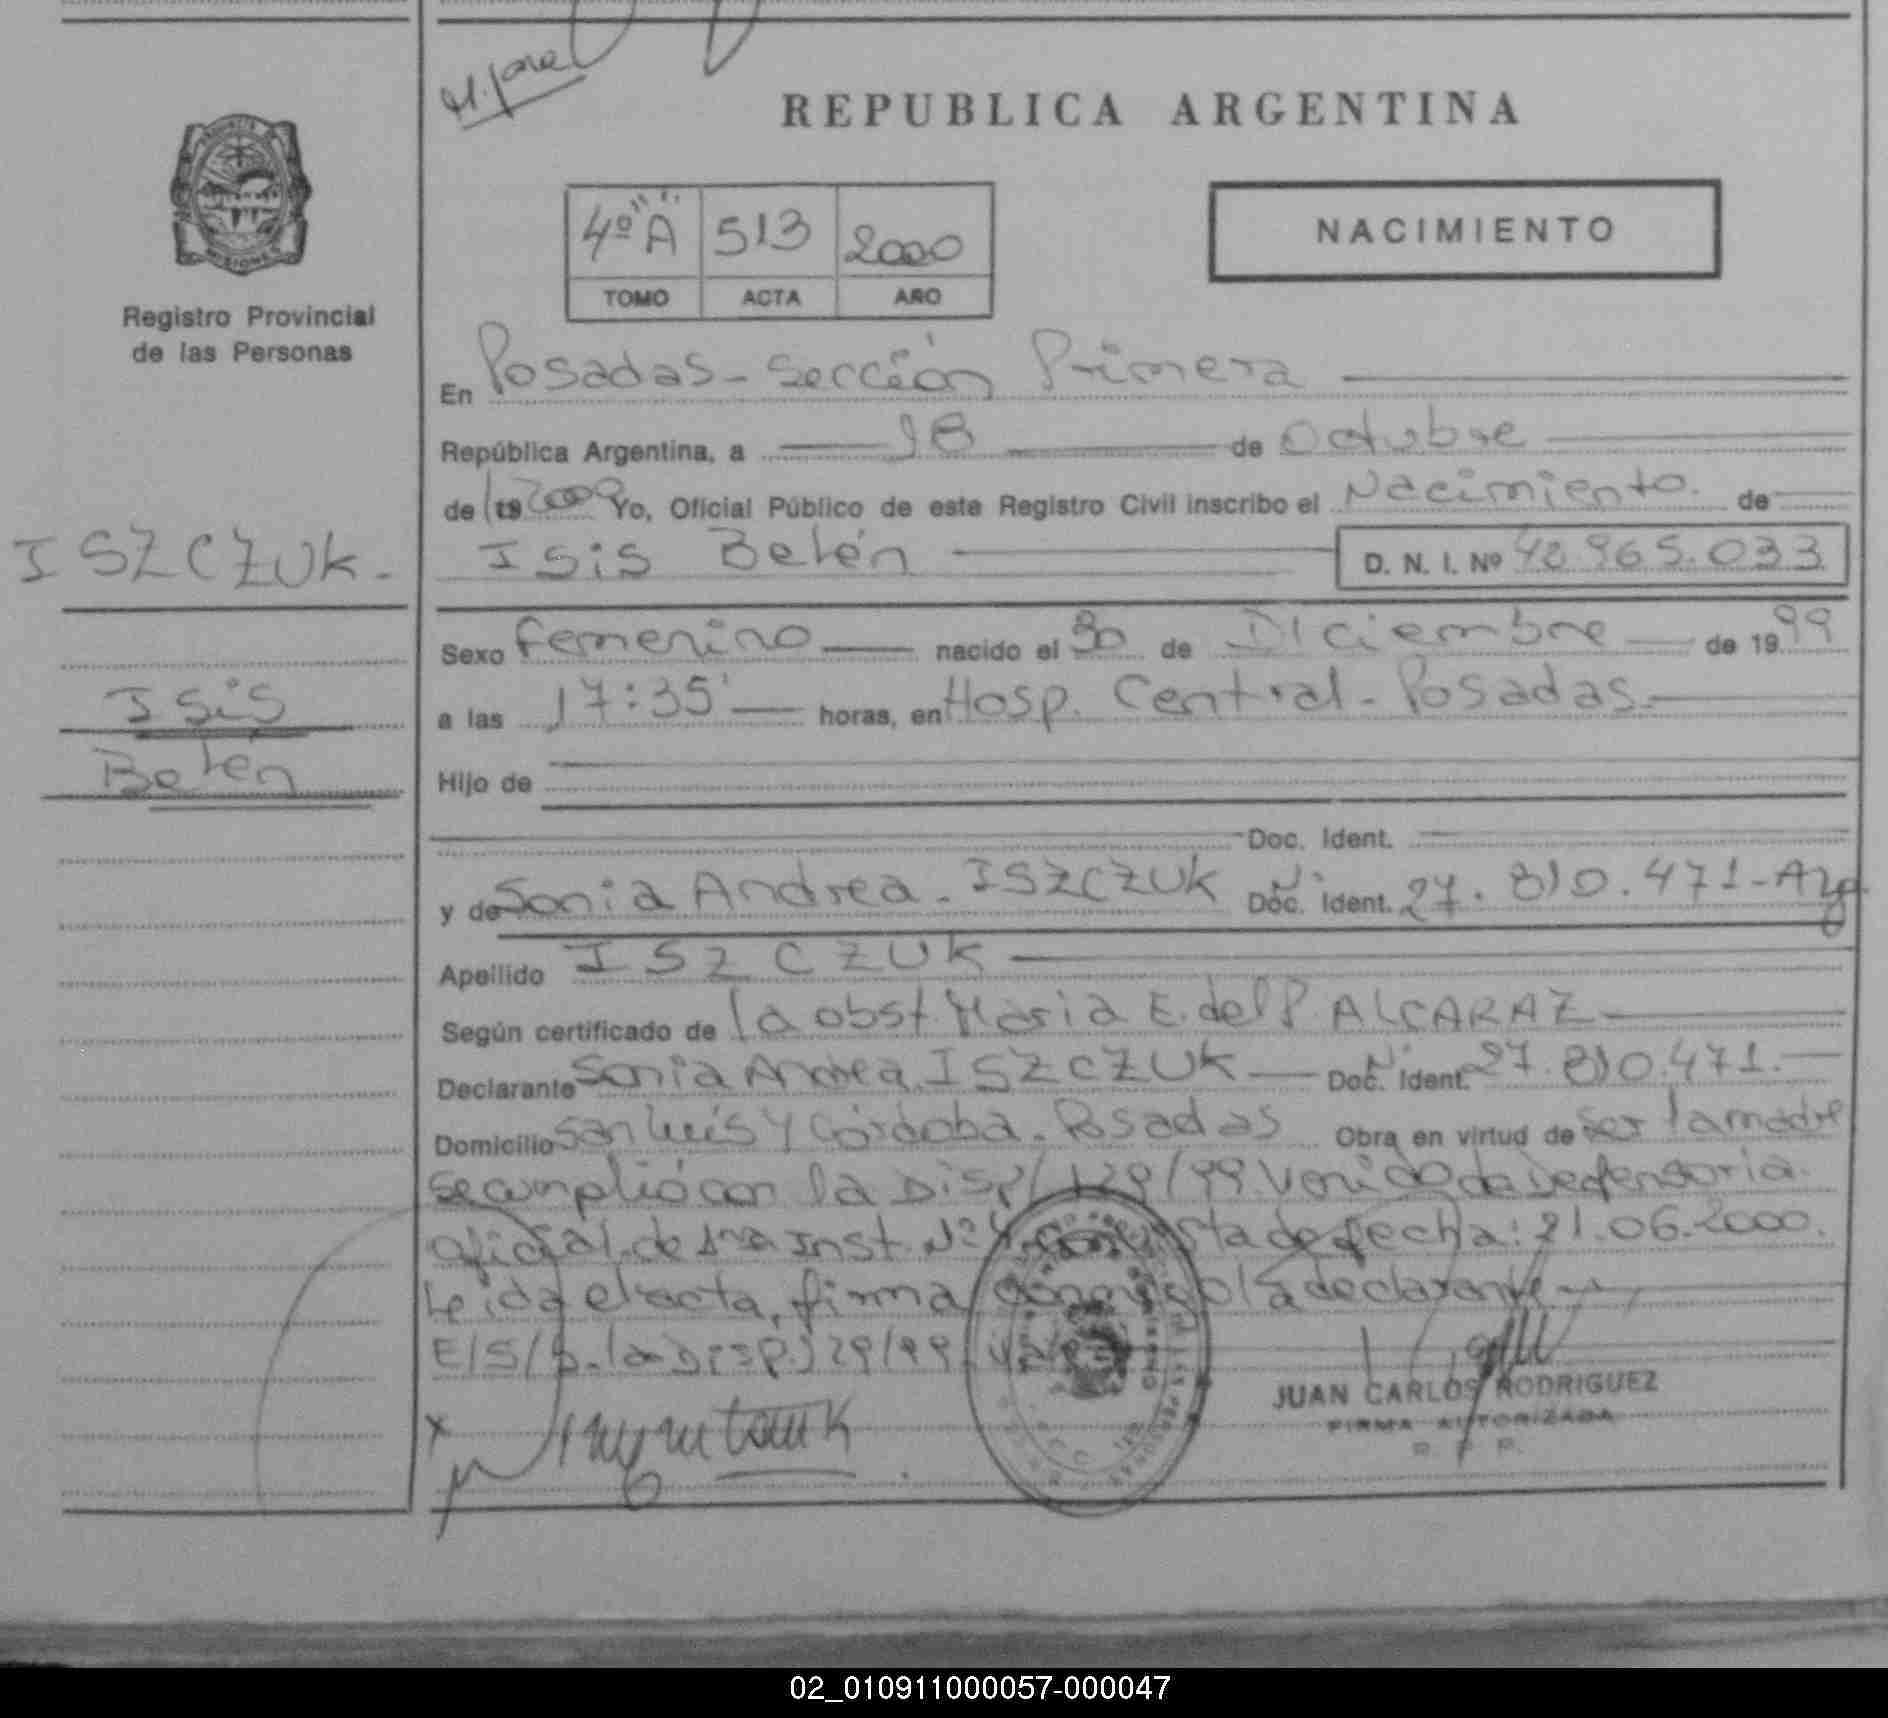 REPUBLICA ARGENTINA
4º "A" 513 2000
TOMO ACTA AÑO
NACIMIENTO
Registro Provincial
de las Personas
En Posadas - Sección Primera
República Argentina, a 18 de Octubre
de (19 2000 Yo, Oficial Público de este Registro Civil inscribo el Nacimiento. de
ISZCZUK.
Isis Belén D. N. I. Nº 42.965.033
Sexo Femenino nacido el 30 de Diciembre de 1999
Isis
Belén
a las 17:35' horas, en Hosp. Central - Posadas.
Hijo de
Doc. Ident.
y de Sonia Andrea - ISZCZUK Doc. Ident. 27.810.471-Arg.
Apellido ISZCZUK
Según certificado de la obst. María E. del P. ALCARAZ
Declarante Sonia Andrea ISZCZUK Doc. Ident. 27.810.471.
Domicilio San Luis y Córdoba - Posadas Obra en virtud de ser la madre
se cumplió con la Disp/ 129/99. Venido de Defensoria
oficial de 1ra Inst. Nº de fecha: 21.06.2000.
Leida el acta, firma conmigo la declarante
E/S/b. la Disp. 129/99. Vale
JUAN CARLOS RODRIGUEZ
FIRMA AUTORIZADA
R. P. P.
02_010911000057-000047